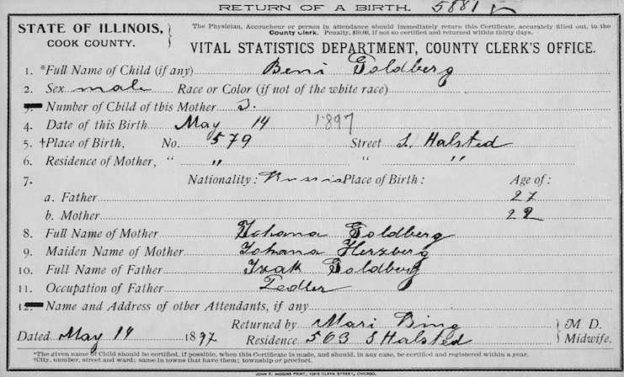 RETURN OF A BIRTH. 5881
STATE OF ILLINOIS, COOK COUNTY.
The Physician, Accoucheur or person in attendance should immediately return this Certificate, accurately filled out, to the
County Clerk. Penalty, $10.00, if not so certified and returned within thirty days.
VITAL STATISTICS DEPARTMENT, COUNTY CLERK'S OFFICE.
1. *Full Name of Child (if any) Beni Goldberg
2. Sex male Race or Color (if not of the white race)
3. Number of Child of this Mother
4. Date of this Birth May 14 1897
5. †Place of Birth, No. 579 Street S. Halsted
6. Residence of Mother, " " " "
7. Nationality: Russia Place of Birth: Age of:
a. Father 27
b. Mother 22
8. Full Name of Mother Johana Goldberg
9. Maiden Name of Mother Johana Herzberg
10. Full Name of Father Izak Goldberg
11. Occupation of Father Pedler
12. Name and Address of other Attendants, if any
Returned by Mari Bing M. D.
Dated May 14 1897 Residence 563 S Halsted Midwife.
*The given name of Child should be certified, if possible, when this Certificate is made, and should, in any case, be certified and registered within a year.
†City, number, street and ward; same in towns that have them; township or precinct.